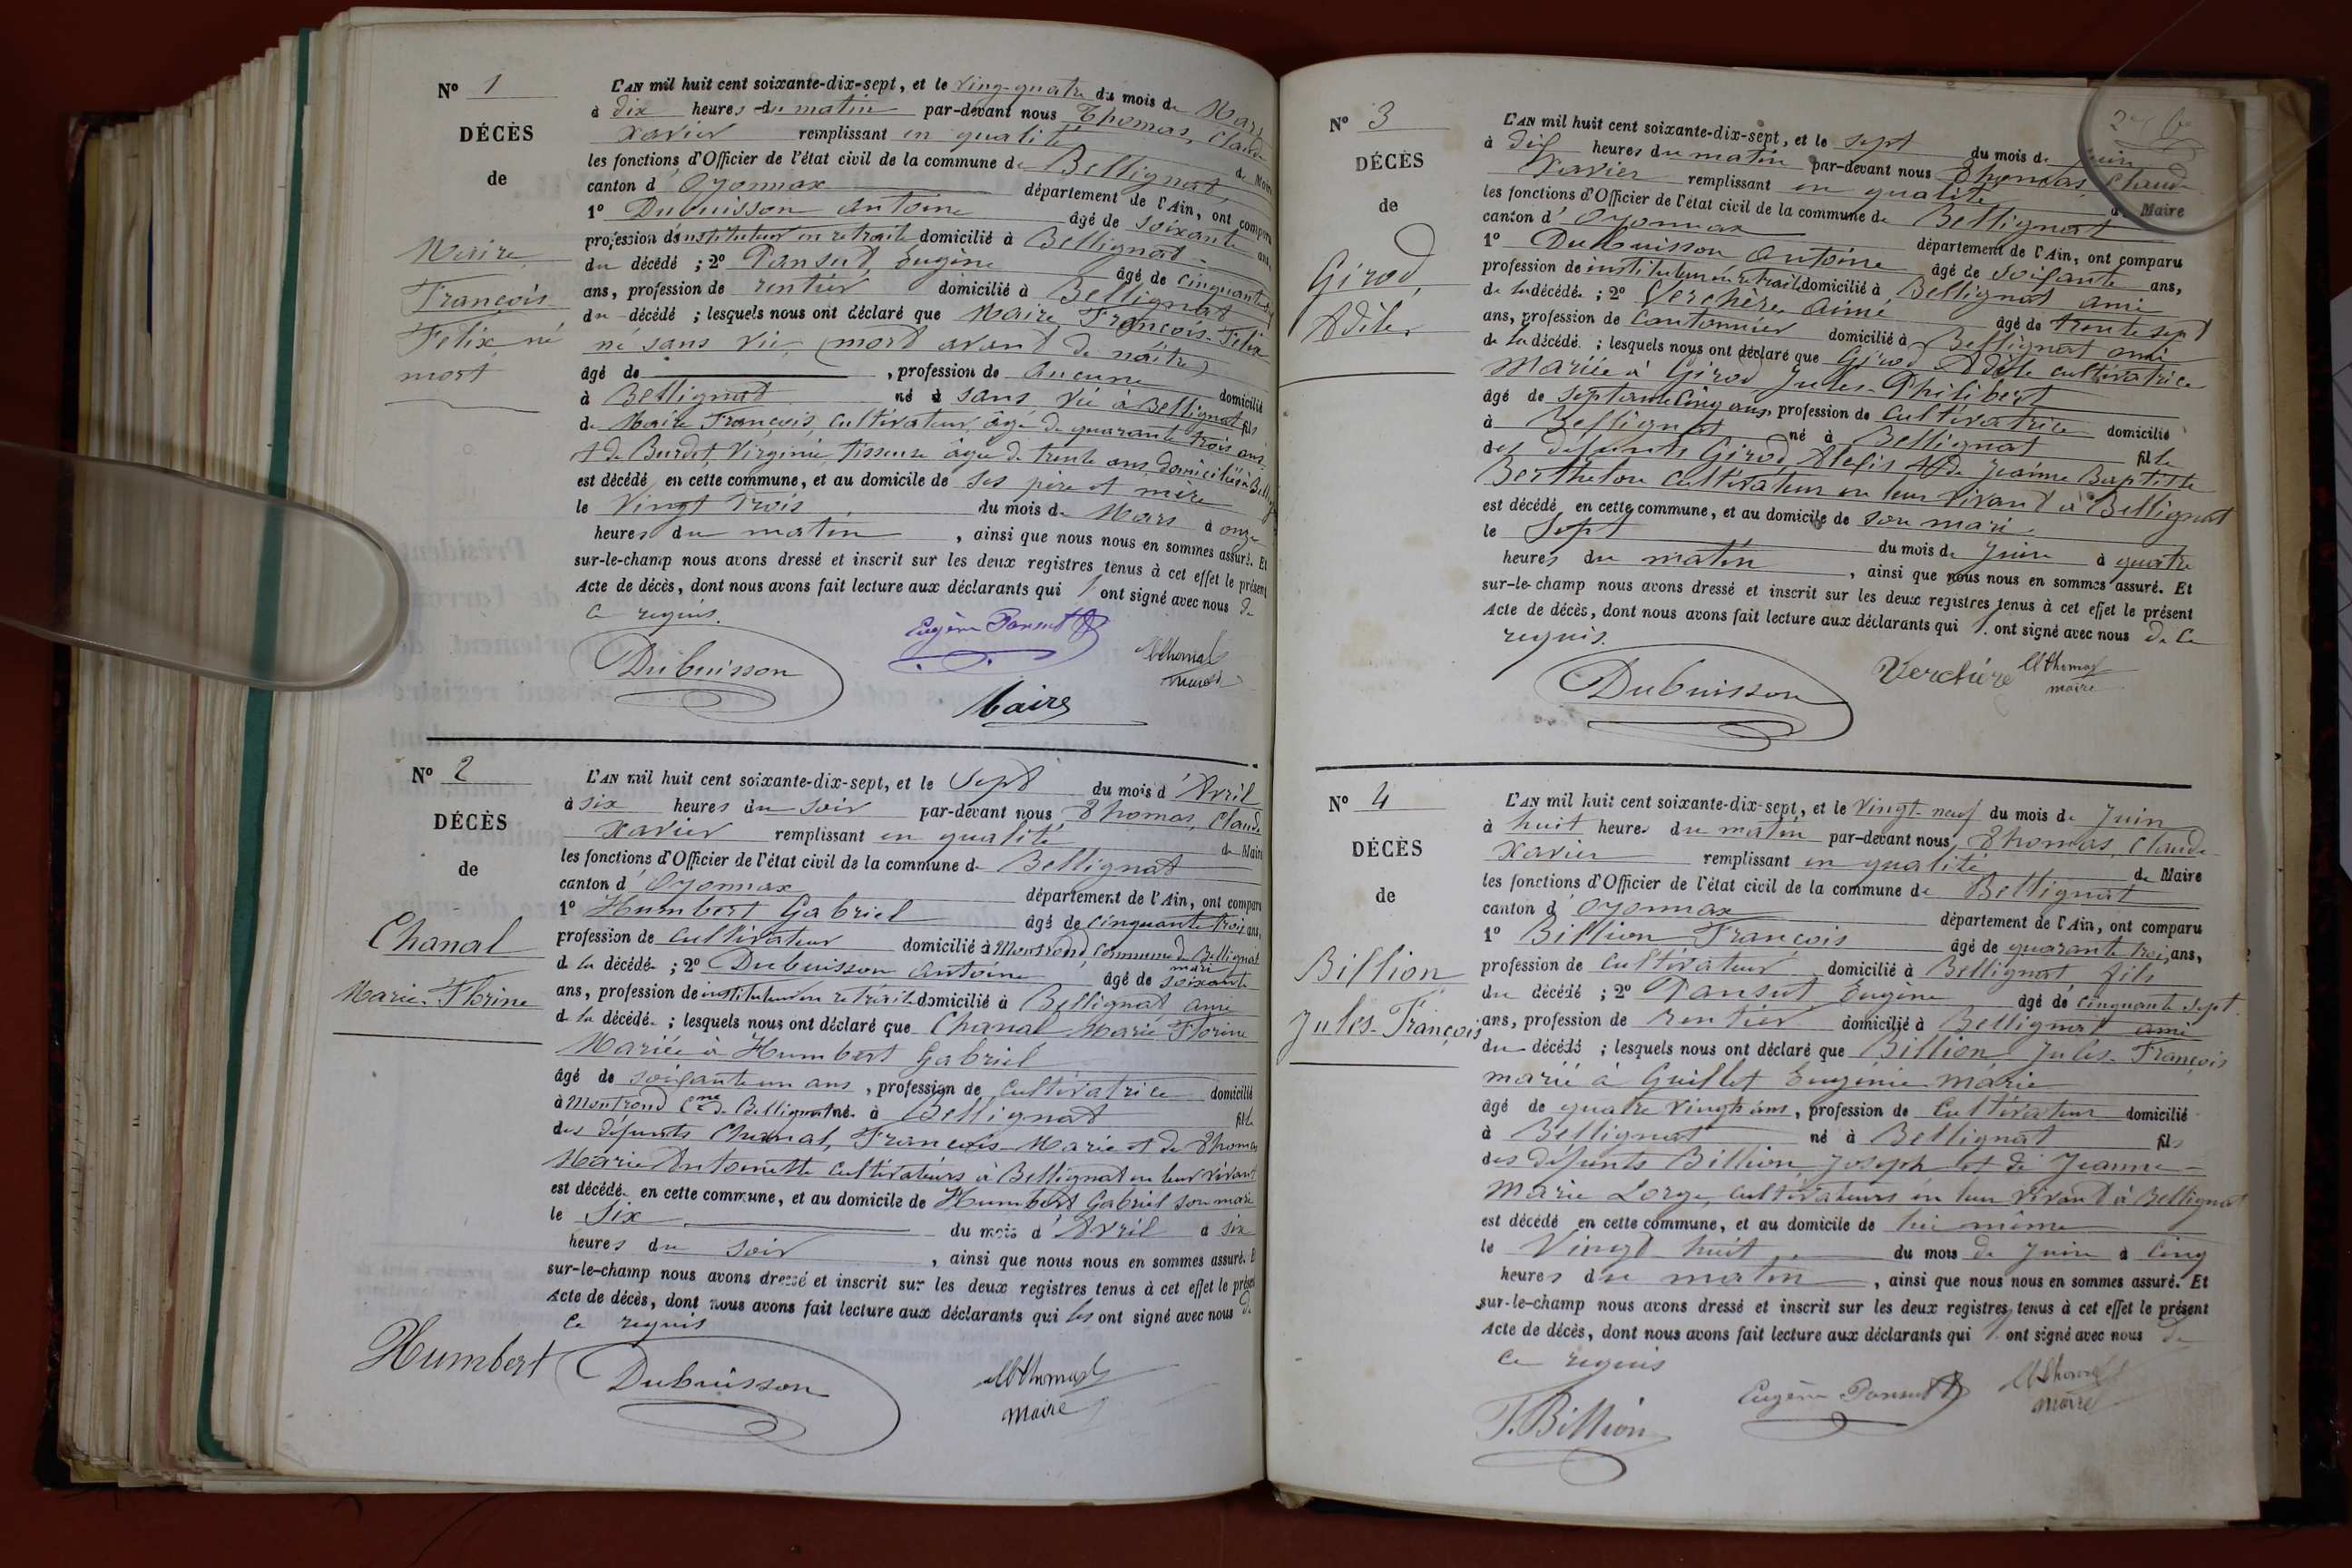 Nº 1
DÉCÈS
de
Maire
François
Felix né
mort
L'AN mil huit cent soixante-dix-sept, et le ving-quatre du mois de Mars
à dix heures du matin par-devant nous Thomas, Claude
Xavier remplissant en qualité de Maire
les fonctions d'Officier de l'état civil de la commune de Bellignat
canton d'Oyonnax département de l'Ain, ont comparu
1º Dubuisson Antoine âgé de soixante ans,
profession d'instituteur en retraite domicilié à Bellignat
du décédé ; 2º Pansut, Eugène âgé de cinquante
ans, profession de rentier domicilié à Bellignat
du décédé ; lesquels nous ont déclaré que Maire François-Félix
né sans vie, (mort avant de naître)
âgé de , profession de aucune domicilié
à Bellignat né à sans vie à Bellignat fils
de Maire François, cultivateur âgé de quarante trois ans
et de Burdet, Virginie, tisseuse âgée de trente ans domiciliés à
est décédé en cette commune, et au domicile de ses père et mère
le Vingt Trois du mois de Mars à onze
heures du matin , ainsi que nous nous en sommes assuré. Et
sur-le-champ nous avons dressé et inscrit sur les deux registres tenus à cet effet le présent
Acte de décès, dont nous avons fait lecture aux déclarants qui l'ont signé avec nous de
ce requis.
Dubuisson
Eugène Pansut
Thomas
maire
Maire
Nº 2
DÉCÈS
de
Chanal
Marie-Florine
L'AN mil huit cent soixante-dix-sept, et le Sept du mois d'Avril
à six heures du soir par-devant nous Thomas, Claude
Xavier remplissant en qualité de Maire
les fonctions d'Officier de l'état civil de la commune de Bellignat
canton d'Oyonnax département de l'Ain, ont comparu
1º Humbert Gabriel âgé de cinquante trois ans,
profession de cultivateur domicilié à Montrond, commune de Bellignat
mari
de la décédée ; 2º Dubuisson Antoine âgé de soixante
ans, profession de instituteur en retraite domicilié à Bellignat, ami
de la décédée ; lesquels nous ont déclaré que Chanal Marie Florine
Mariée à Humbert Gabriel
âgé de soixante un ans , profession de cultivatrice domicilié
à Montrond Cne de Bellignat née à Bellignat fille
des défunts Chanal, François-Marie et de Thomas
Marie Antoinette cultivateurs à Bellignat en leur vivant
est décédée en cette commune, et au domicile de Humbert Gabriel son mari
le Six du mois d'Avril à six
heures du soir , ainsi que nous nous en sommes assuré. E
sur-le-champ nous avons dressé et inscrit sur les deux registres tenus à cet effet le prése
Acte de décès, dont nous avons fait lecture aux déclarants qui les ont signé avec nous de
ce requis
Humbert
Dubuisson
Thomas
maire
Nº 3
DÉCÈS
de
Girod,
Adèle
L'AN mil huit cent soixante-dix-sept, et le sept du mois de juin
à dix heures du matin par-devant nous Thomas, Claude
Xavier remplissant en qualité de Maire
les fonctions d'Officier de l'état civil de la commune de Bellignat
canton d'Oyonnax département de l'Ain, ont comparu
1º Dubuisson Antoine âgé de soixante ans,
profession de instituteur en retraite domicilié à Bellignat ami
de la décédée ; 2º Verchère Aimé âgé de trente sept
ans, profession de Cantonnier domicilié à Bellignat ami
de la décédé ; lesquels nous ont déclaré que Girod Adèle cultivatrice
Mariée à Girod Jules-Philibert
âgé de septante cinq ans, profession de cultivatrice domicilié
à Bellignat né à Bellignat fille
des défunts Girod Alexis et de Jeanne Baptiste
Bertheton cultivateur en leur vivant à Bellignat
est décédé en cette commune, et au domicile de son mari
le Sept du mois de Juin à quatre
heures du matin , ainsi que nous nous en sommes assuré. Et
sur-le-champ nous avons dressé et inscrit sur les deux registres tenus à cet effet le présent
Acte de décès, dont nous avons fait lecture aux déclarants qui l'ont signé avec nous de ce
requis.
Dubuisson
Verchère
Thomas
maire
Nº 4
DÉCÈS
de
Billion
Jules-François
L'AN mil huit cent soixante-dix-sept, et le Vingt-neuf du mois de Juin
à huit heures du matin par-devant nous Thomas, Claude
Xavier remplissant en qualité de Maire
les fonctions d'Officier de l'état civil de la commune de Bellignat
canton d'Oyonnax département de l'Ain, ont comparu
1º Billion François âgé de quarante trois, ans,
profession de cultivateur domicilié à Bellignat fils
du décédé ; 2º Pansut Eugène âgé de cinquante sept
ans, profession de rentier domicilié à Bellignat ami
du décédé ; lesquels nous ont déclaré que Billion Jules-François
marié à Guillet Eugénie Marie
âgé de quatre vingts ans, profession de cultivateur domicilié
à Bellignat né à Bellignat fils
des défunts Billion Joseph et de Jeanne-
Marie Lorge, cultivateurs en leur vivant à Bellignat
est décédé en cette commune, et au domicile de lui même
le Vingt huit du mois de Juin à cinq
heures du matin , ainsi que nous nous en sommes assuré. Et
sur-le-champ nous avons dressé et inscrit sur les deux registres tenus à cet effet le présent
Acte de décès, dont nous avons fait lecture aux déclarants qui l'ont signé avec nous de
ce requis
F. Billion
Eugène Pansut
Thomas
maire